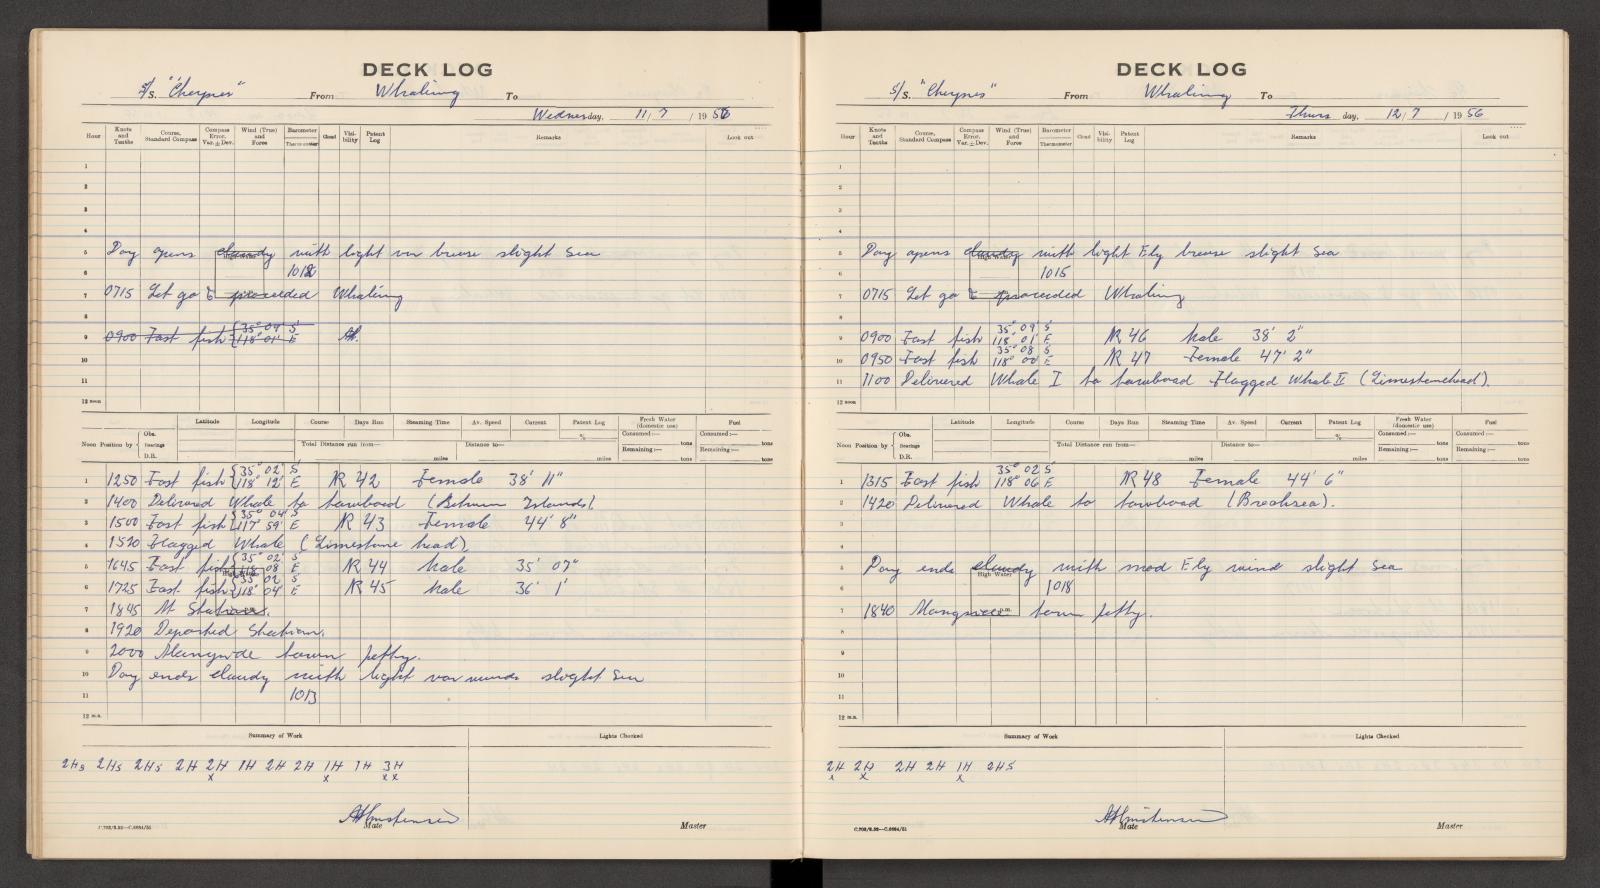 DECK LOG
S/S. "Cheynes" From Whaling To
Wednesday. 11/7/1956
Hour Knots and Tenths Course, Standard Compass Compass Error. Var. ± Dev. Wind (True) and Force Barometer Thermometer Cloud Visibility Patent Log Remarks Look out
1
2
3
4
5 Day opens cloudy with light var breeze slight sea
High Water
6 1012
7 0715 Let go & proceeded Whaling
8
9 0900 Fast fish 35° 09' S 118° 01' E
10
11
12 noon
Latitude Longitude Course Days Run Steaming Time Av. Speed Current Patent Log % Fresh Water (domestic use) Fuel
Noon Position by Obs. Bearings D.R. Total Distance run from— miles Distance to— miles Consumed:— tons Remaining:— tons Consumed:— tons Remaining:— tons
1 1250 Fast fish 35° 02' S 118° 12' E NR 42 Female 38' 11"
2 1400 Delivered Whale to towboad (Between Islands).
3 1500 Fast fish 35° 04' S 117° 59' E NR 43 Female 44' 8"
4 1520 Flagged Whale (Limestone head).
5 1645 Fast fish 35° 02' S 118° 08' E NR 44 Male 35' 07"
High Water
6 1725 Fast fish 35° 02' S 118° 04' E NR 45 Male 36' 1'
7 1845 At Station.
8 1920 Departed Station.
9 2000 Alangside town jetty.
10 Day ends cloudy with light var winds slight Sea
11 1013
12 m.n.
Summary of Work Lights Checked
2Hs 2Hs 2Hs 2H 2H 1H 2H 2H 1H 1H 3H
x x xx
Mate Master
C.702/8.52—C.6894/51
DECK LOG
S/S. "Cheynes" From Whaling To
Thurs day. 12/7/1956
Hour Knots and Tenths Course, Standard Compass Compass Error. Var. ± Dev. Wind (True) and Force Barometer Thermometer Cloud Visibility Patent Log Remarks Look out
1
2
3
4
5 Day opens cloudy with light Ely breeze slight sea
High Water
6 1015
7 0715 Let go & proceeded Whaling
8
9 0900 Fast fish 35° 09' S 118° 01' E NR 46 Male 38' 2"
10 0950 Fast fish 35° 08 S 118° 00' E NR 47 Female 47' 2"
11 1100 Delivered Whale I to towboad Flagged Whale II (Limestonehead).
12 noon
Latitude Longitude Course Days Run Steaming Time Av. Speed Current Patent Log % Fresh Water (domestic use) Fuel
Noon Position by Obs. Bearings D.R. Total Distance run from— miles Distance to— miles Consumed:— tons Remaining:— tons Consumed:— tons Remaining:— tons
1 1315 Fast fish 35° 02 S 118° 06 E NR 48 Female 44' 6"
2 1420 Delivered Whale to towboad (Breaksea).
3
4
5 Day ends cloudy with mod Ely wind slight Sea
High Water
6 1018
7 1840 Alangside town jetty.
8
9
10
11
12 m.n.
Summary of Work Lights Checked
2H 2H 2H 2H 1H 2HS
x x x
Mate Master
C.702/8.52—C.6894/51